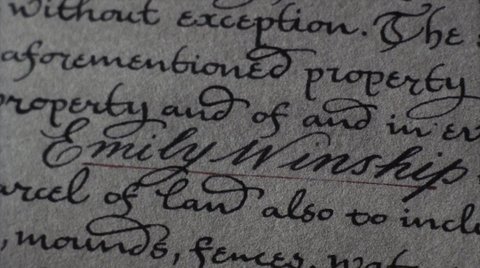 without exception. The
aforementioned property
property and of and in
Emily Winship
parcel of land also to
, mounds, fences,